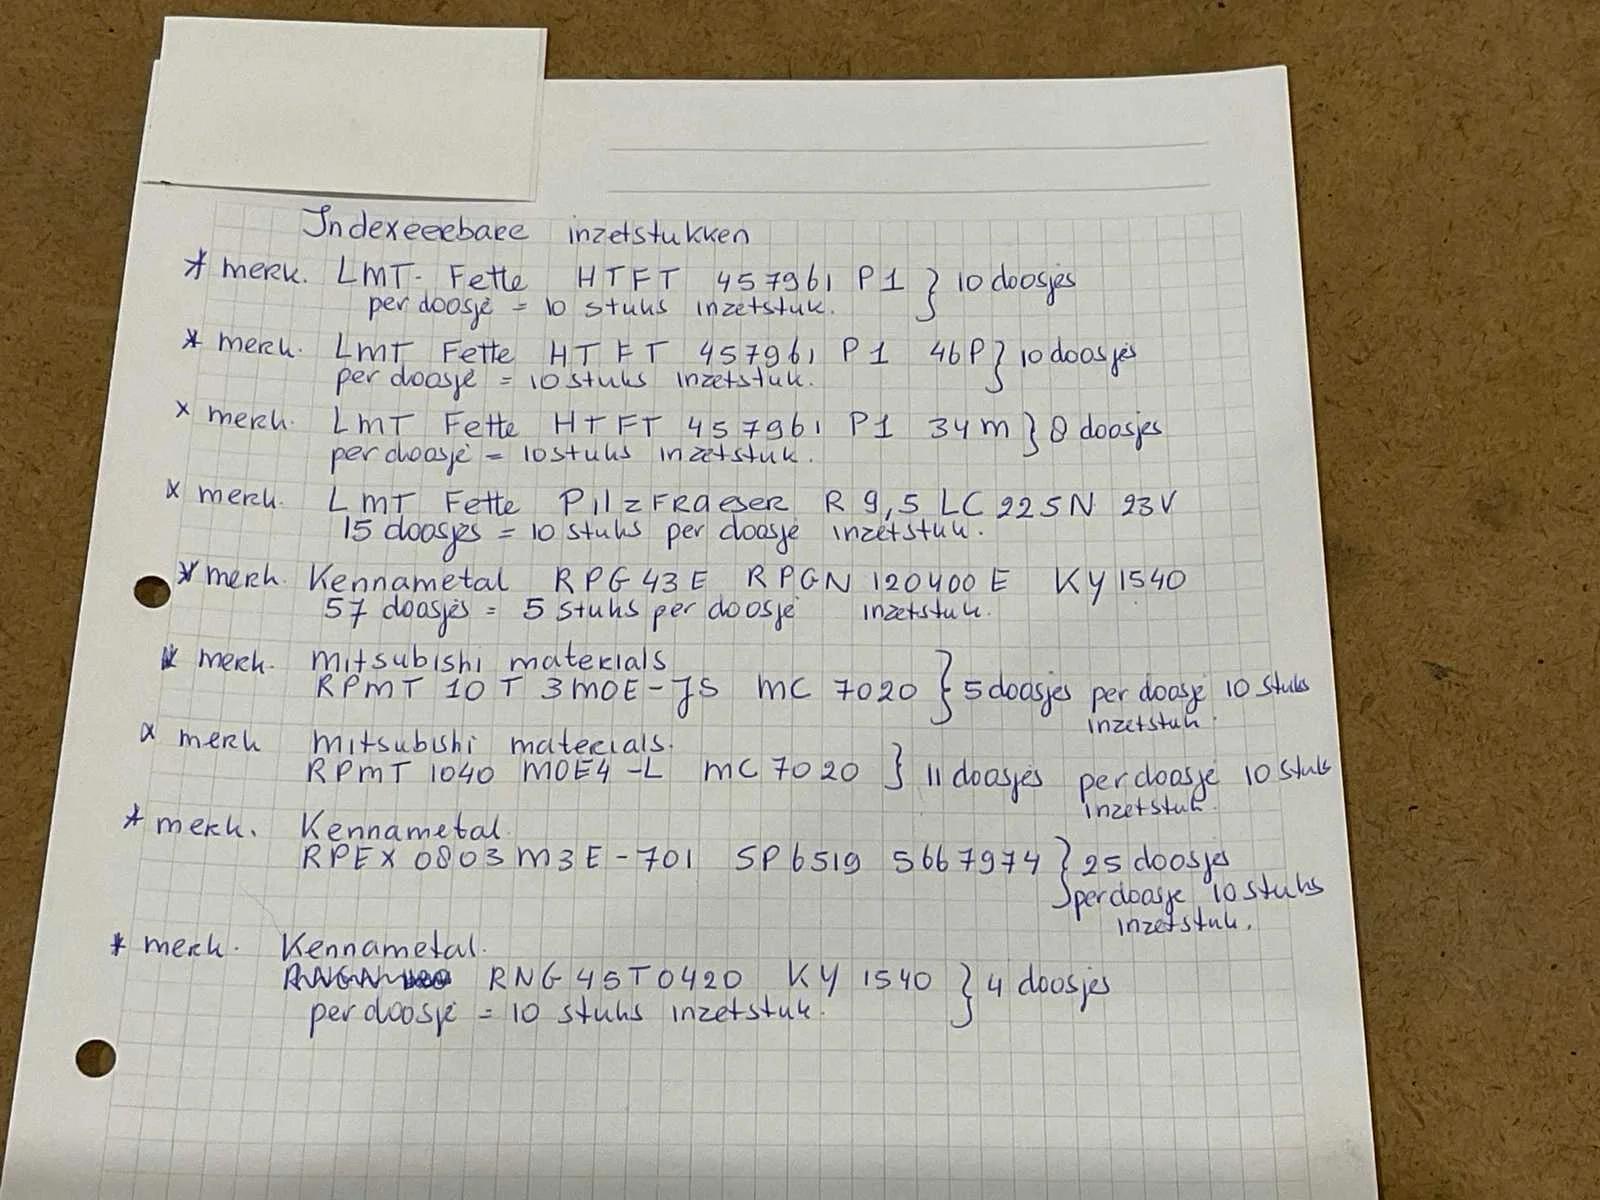 Indexeerbare inzetstukken
* merk. LMT- Fette HTFT 457961 P1 } 10 doosjes
per doosje = 10 stuks inzetstuk.
* merk. LMT Fette HTFT 457961 P1 46P } 10 doosjes
per doosje = 10 stuks inzetstuk.
x merk. LMT Fette HTFT 457961 P1 34m } 8 doosjes
per doosje = 10 stuks inzetstuk.
x merk. LMT Fette Pilzfraeser R 9,5 LC 225N 23V
15 doosjes = 10 stuks per doosje inzetstuk.
* merk. Kennametal RPG43E RPGN 120400E KY1540
57 doosjes = 5 stuks per doosje inzetstuk.
* merk. mitsubishi materials
RPMT 10T 3MOE-JS MC 7020 } 5 doosjes per doosje 10 stuks
inzetstuk.
x merk mitsubishi materials.
RPMT 1040 MOE4-L MC7020 } 11 doosjes per doosje 10 stuk
inzetstuk.
* merk. Kennametal.
RPEX 0803M3E-701 SP6519 5667974 } 25 doosjes
per doosje 10 stuks
inzetstuk.
* merk. Kennametal.
RNG45T0420 KY 1540 } 4 doosjes
per doosje = 10 stuks inzetstuk.